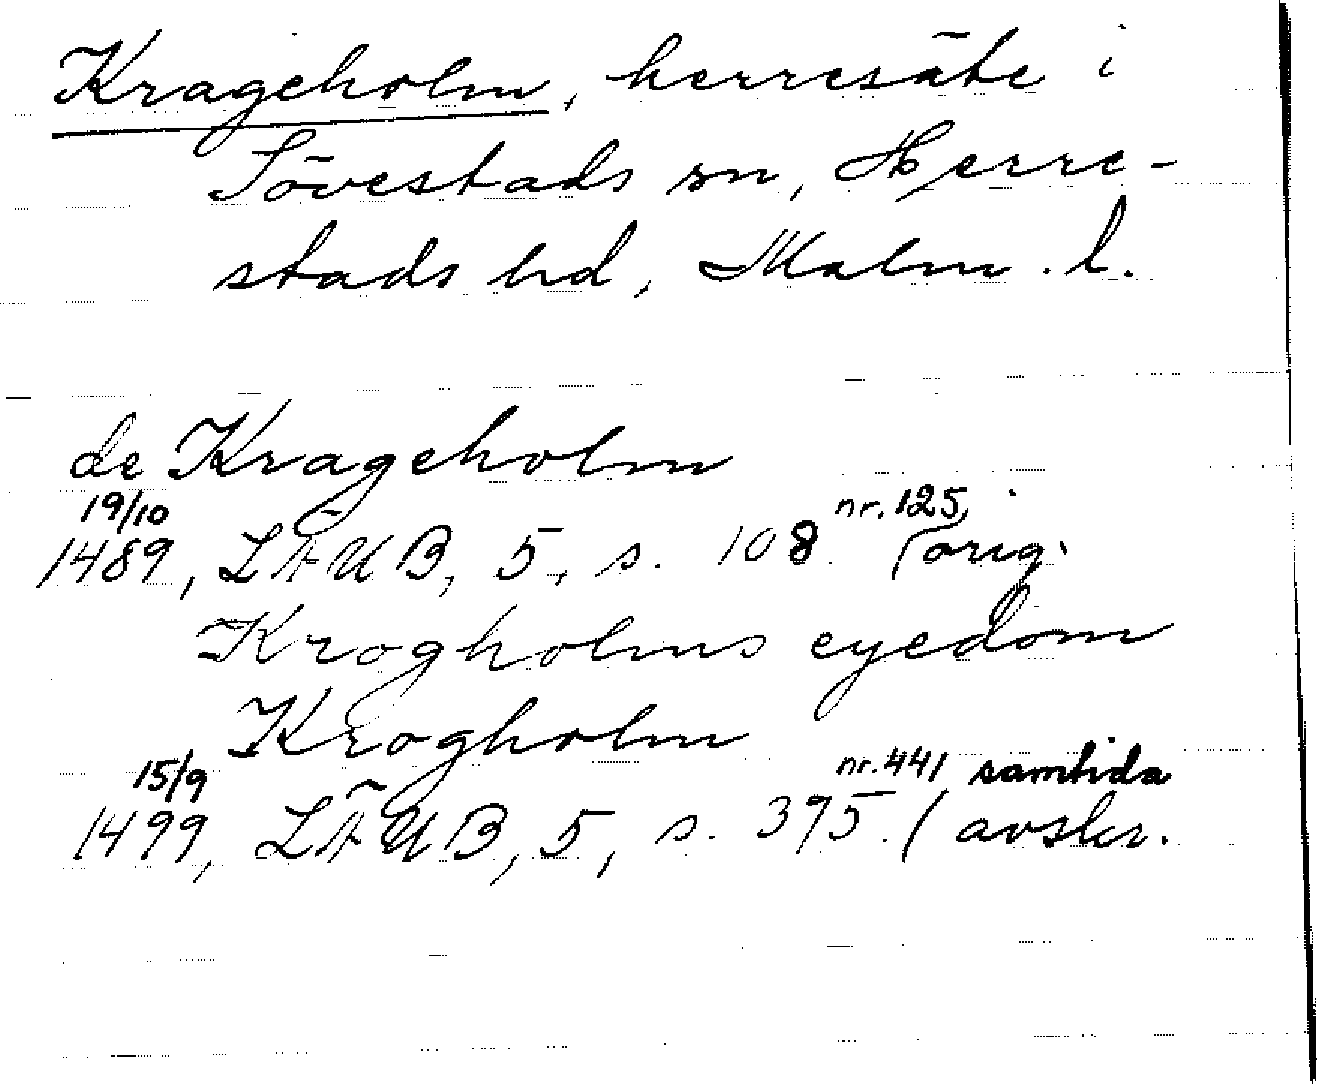 Krageholm, herresäte i
Sövestads sn, Herre-
stads hd, Malm. l.
de Krageholm
19/10 nr. 125,
1489, LÄUB, 5, s. 108 (orig.
Krogholms eyedom
Krogholm
15/9 nr. 441 samtida
1499, LÄUB, 5, s. 375. (avskr.